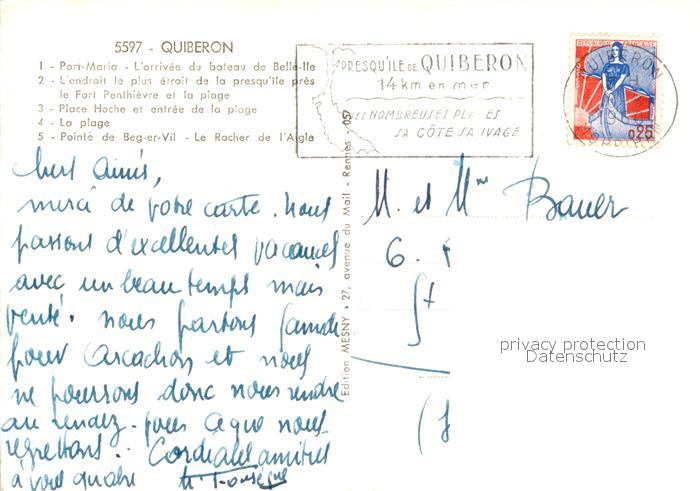 5597 - QUIBERON
1 - Port-Maria - L'arrivée du bateau de Belle-Ile
2 - L'endroit le plus étroit de la presqu'île près
le Fort Penthièvre et la plage
3 - Place Hoche et entrée de la plage
4 - La plage
5 - Pointe de Beg-er-Vil - Le Rocher de l'Aigle
PRESQU'ILE DE QUIBERON
14km en mer
SES NOMBREUSES PLAGES
SA CÔTE SAUVAGE
QUIBERON
REPUBLIQUE FRANCAISE
0,25
Edition MESNY - 27, avenue du Mail - Rennes - 057
Chers Amis,
merci de votre carte. Nous
passons d'excellentes vacances
avec un beau temps mais
venté. Nous partons samedi
pour Arcachon et nous
ne pourrons donc nous rendre
au rendez-vous ce que nous
regrettons. Cordiales amitiés
à vous quatre
M. et Mme Bauer
6.
St
privacy protection
Datenschutz